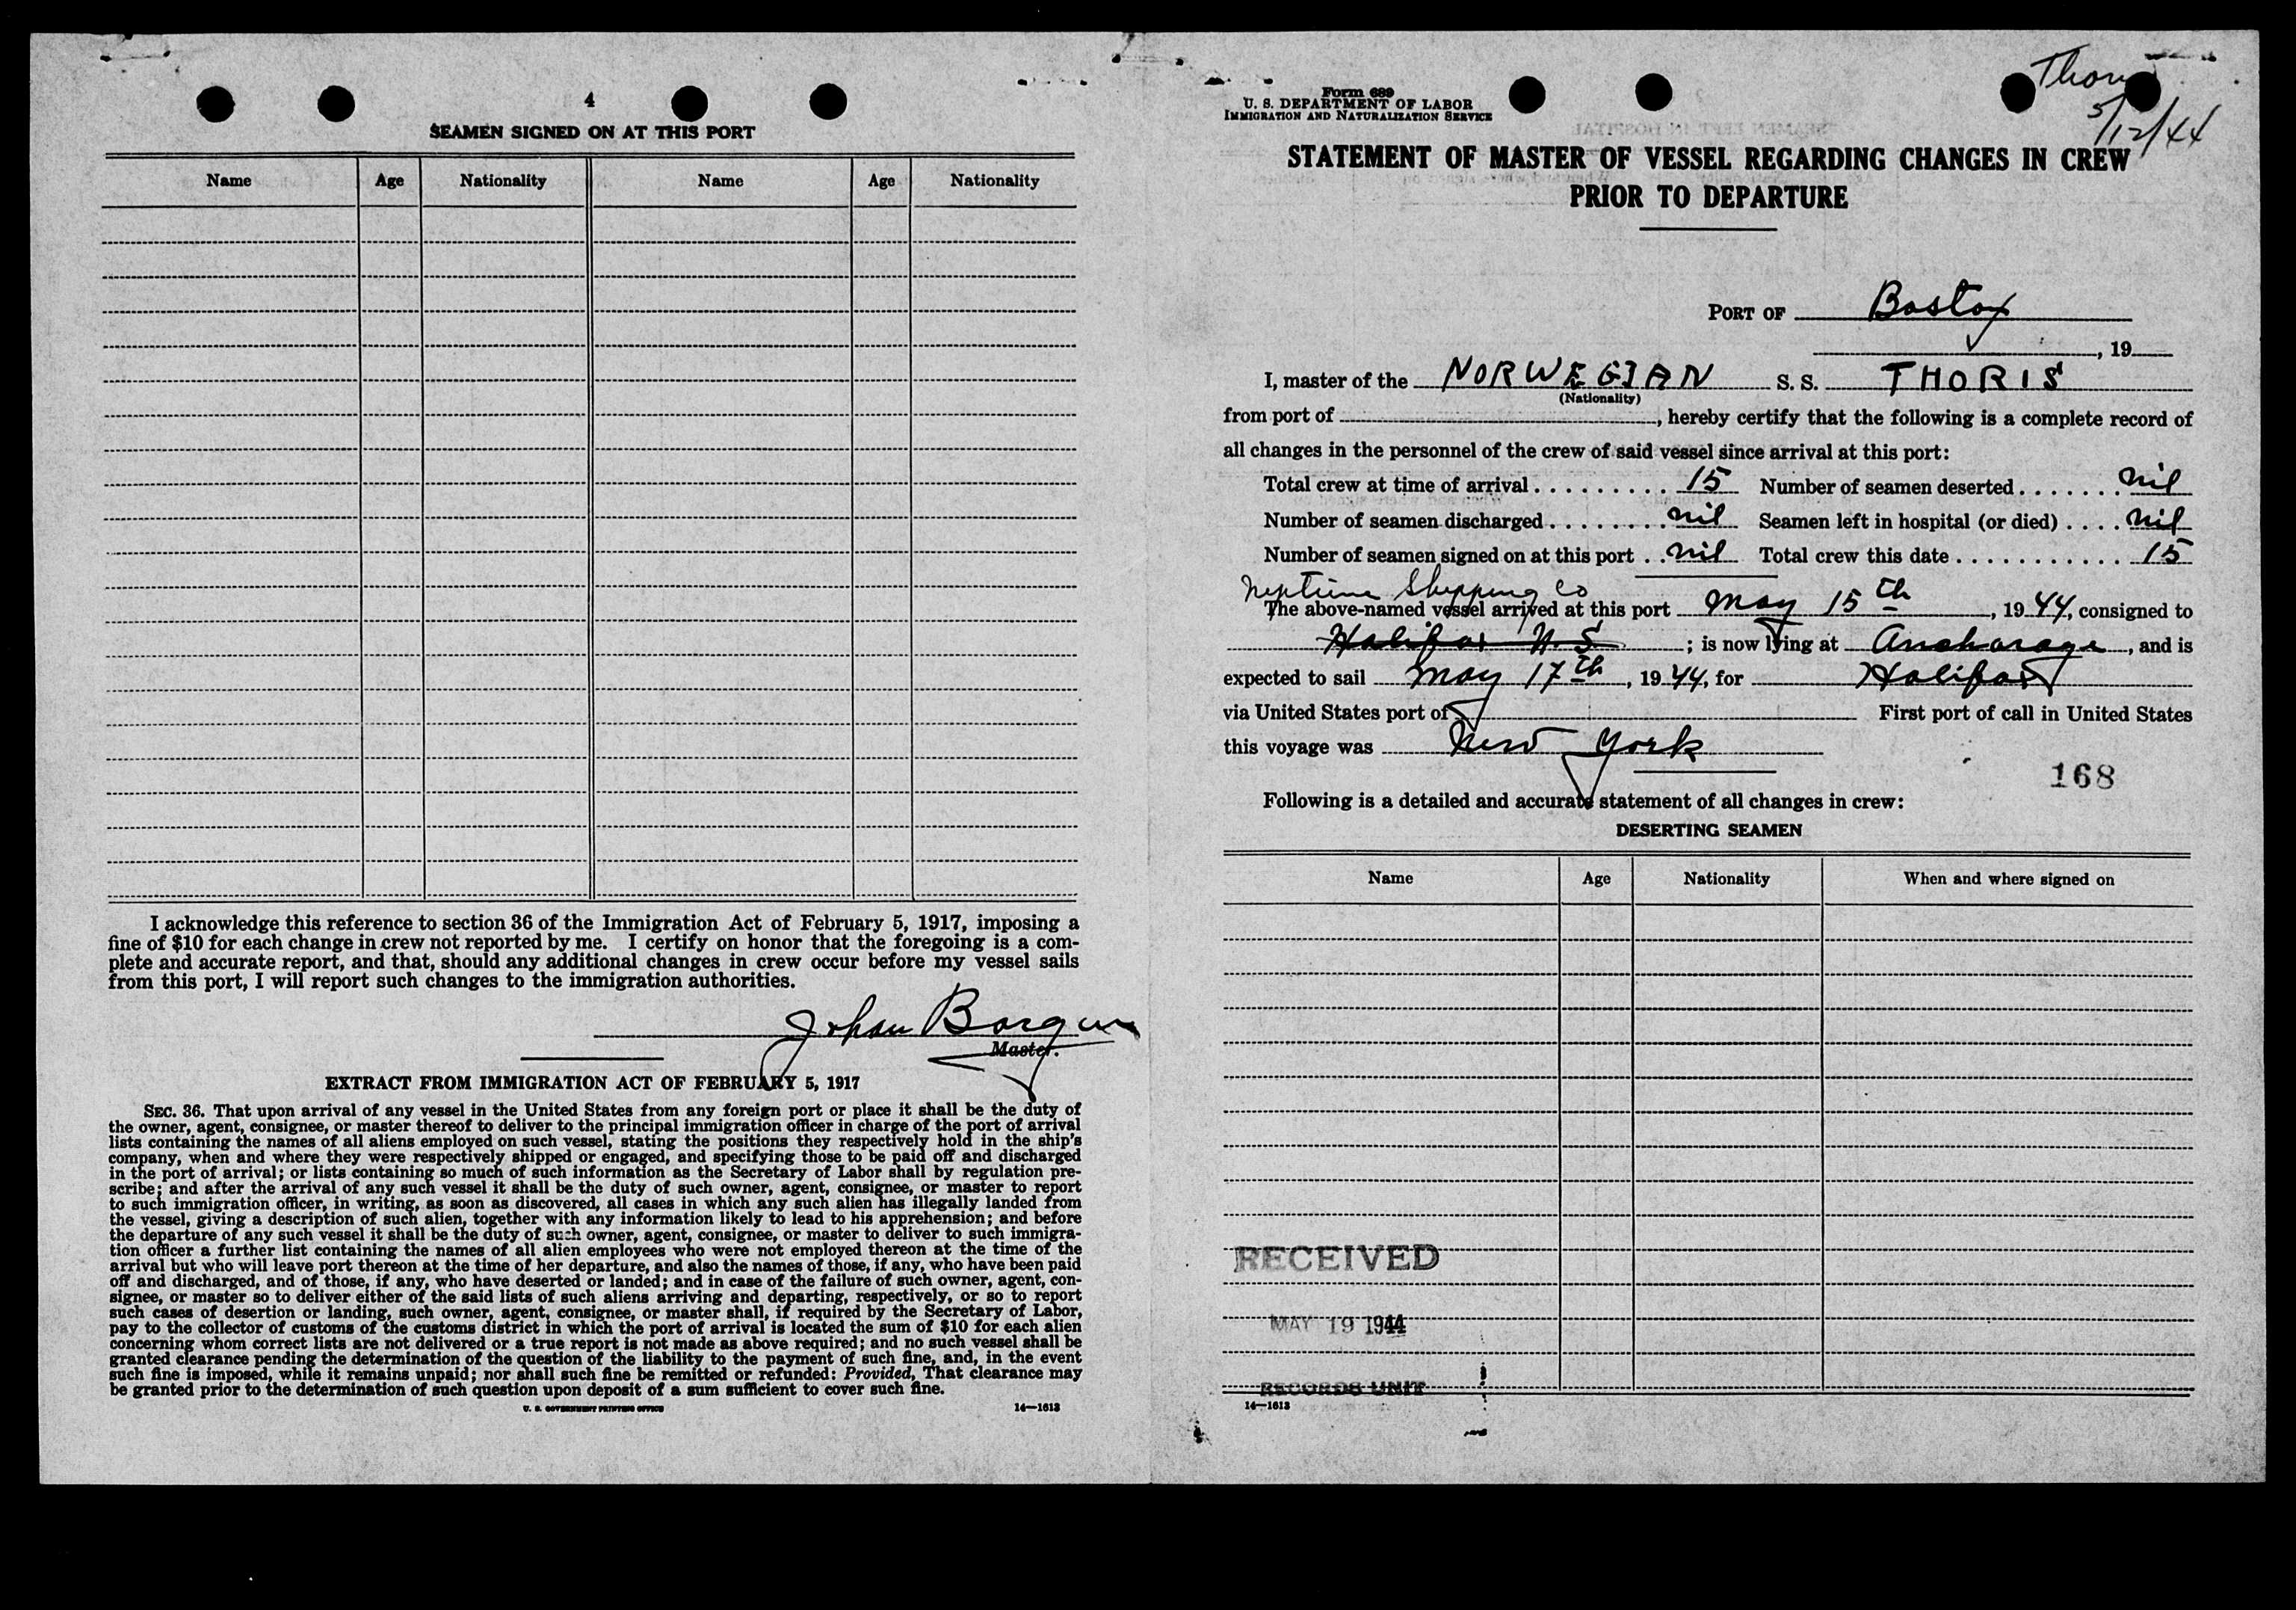 4
SEAMEN SIGNED ON AT THIS PORT
Name Age Nationality Name Age Nationality
I acknowledge this reference to section 36 of the Immigration Act of February 5, 1917, imposing a
fine of $10 for each change in crew not reported by me. I certify on honor that the foregoing is a com-
plete and accurate report, and that, should any additional changes in crew occur before my vessel sails
from this port, I will report such changes to the immigration authorities.
Johan
Master.
EXTRACT FROM IMMIGRATION ACT OF FEBRUARY 5, 1917
SEC. 36. That upon arrival of any vessel in the United States from any foreign port or place it shall be the duty of
the owner, agent, consignee, or master thereof to deliver to the principal immigration officer in charge of the port of arrival
lists containing the names of all aliens employed on such vessel, stating the positions they respectively hold in the ship's
company, when and where they were respectively shipped or engaged, and specifying those to be paid off and discharged
in the port of arrival; or lists containing so much of such information as the Secretary of Labor shall by regulation pre-
scribe; and after the arrival of any such vessel it shall be the duty of such owner, agent, consignee, or master to report
to such immigration officer, in writing, as soon as discovered, all cases in which any such alien has illegally landed from
the vessel, giving a description of such alien, together with any information likely to lead to his apprehension; and before
the departure of any such vessel it shall be the duty of such owner, agent, consignee, or master to deliver to such immigra-
tion officer a further list containing the names of all alien employees who were not employed thereon at the time of the
arrival but who will leave port thereon at the time of her departure, and also the names of those, if any, who have been paid
off and discharged, and of those, if any, who have deserted or landed; and in case of the failure of such owner, agent, con-
signee, or master so to deliver either of the said lists of such aliens arriving and departing, respectively, or so to report
such cases of desertion or landing, such owner, agent, consignee, or master shall, if required by the Secretary of Labor,
pay to the collector of customs of the customs district in which the port of arrival is located the sum of $10 for each alien
concerning whom correct lists are not delivered or a true report is not made as above required; and no such vessel shall be
granted clearance pending the determination of the question of the liability to the payment of such fine, and, in the event
such fine is imposed, while it remains unpaid; nor shall such fine be remitted or refunded: Provided, That clearance may
be granted prior to the determination of such question upon deposit of a sum sufficient to cover such fine.
U. S. GOVERNMENT PRINTING OFFICE 14—1613
5/12/44
Form 689
U. S. DEPARTMENT OF LABOR
IMMIGRATION AND NATURALIZATION SERVICE
STATEMENT OF MASTER OF VESSEL REGARDING CHANGES IN CREW
PRIOR TO DEPARTURE
PORT OF Boston
, 19
I, master of the NORWEGIAN S. S. THORIS
(Nationality)
from port of , hereby certify that the following is a complete record of
all changes in the personnel of the crew of said vessel since arrival at this port:
Total crew at time of arrival . . . . . . . . . . 15 Number of seamen deserted . . . . . . . nil
Number of seamen discharged . . . . . . . . . nil Seamen left in hospital (or died) . . . . nil
Number of seamen signed on at this port . . nil Total crew this date . . . . . . . . . . . . 15
Neptune Shipping Co
The above-named vessel arrived at this port May 15th, 1944, consigned to
Halifax N. S ; is now lying at Anchorage, and is
expected to sail May 17th, 1944, for Halifax
via United States port of First port of call in United States
this voyage was New York
168
Following is a detailed and accurate statement of all changes in crew:
DESERTING SEAMEN
Name Age Nationality When and where signed on
RECEIVED
MAY 19 1944
RECORDS UNIT
14—1613